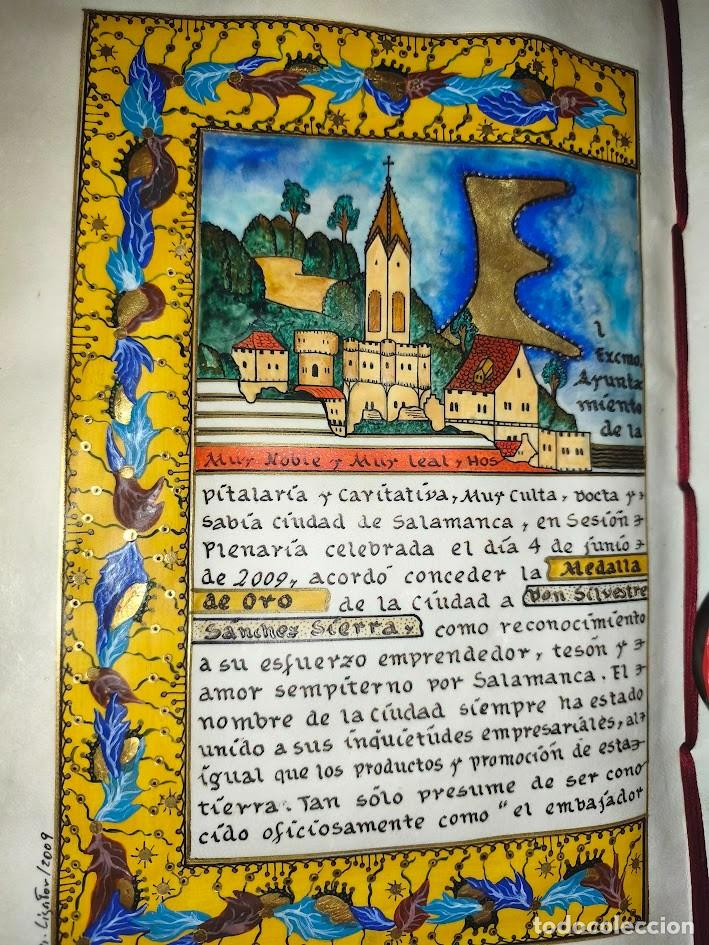 El
Excmo.
Ayunta
miento
de la
Muy Noble y Muy leal, Hos
pitalaria y Caritativa, Muy Culta, Docta y
Sabia Ciudad de Salamanca, en Sesión
Plenaria celebrada el día 4 de junio
de 2009, acordó conceder la Medalla
de Oro de la Ciudad a Don Silvestre
Sánchez Sierra, como reconocimiento
a su esfuerzo emprendedor, tesón y
amor sempiterno por Salamanca. El
nombre de la Ciudad siempre ha estado
unido a sus inquietudes empresariales, al
igual que los productos y promoción de esta
tierra. Tan sólo presume de ser cono
cido oficiosamente como "el embajador
/2009
todocoleccion